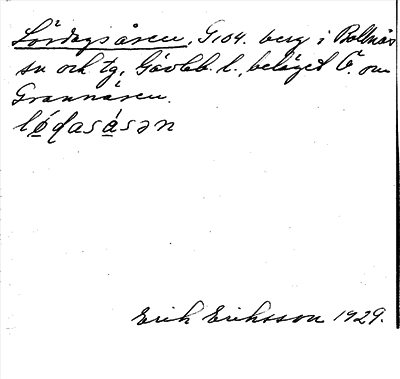 Lördagsåsen, G104. berg i Bollnäs
sn och tg, Gävleb. l., beläget Ö. om
Grannåsen.
lǿdasásən
Erik Eriksson 1929.